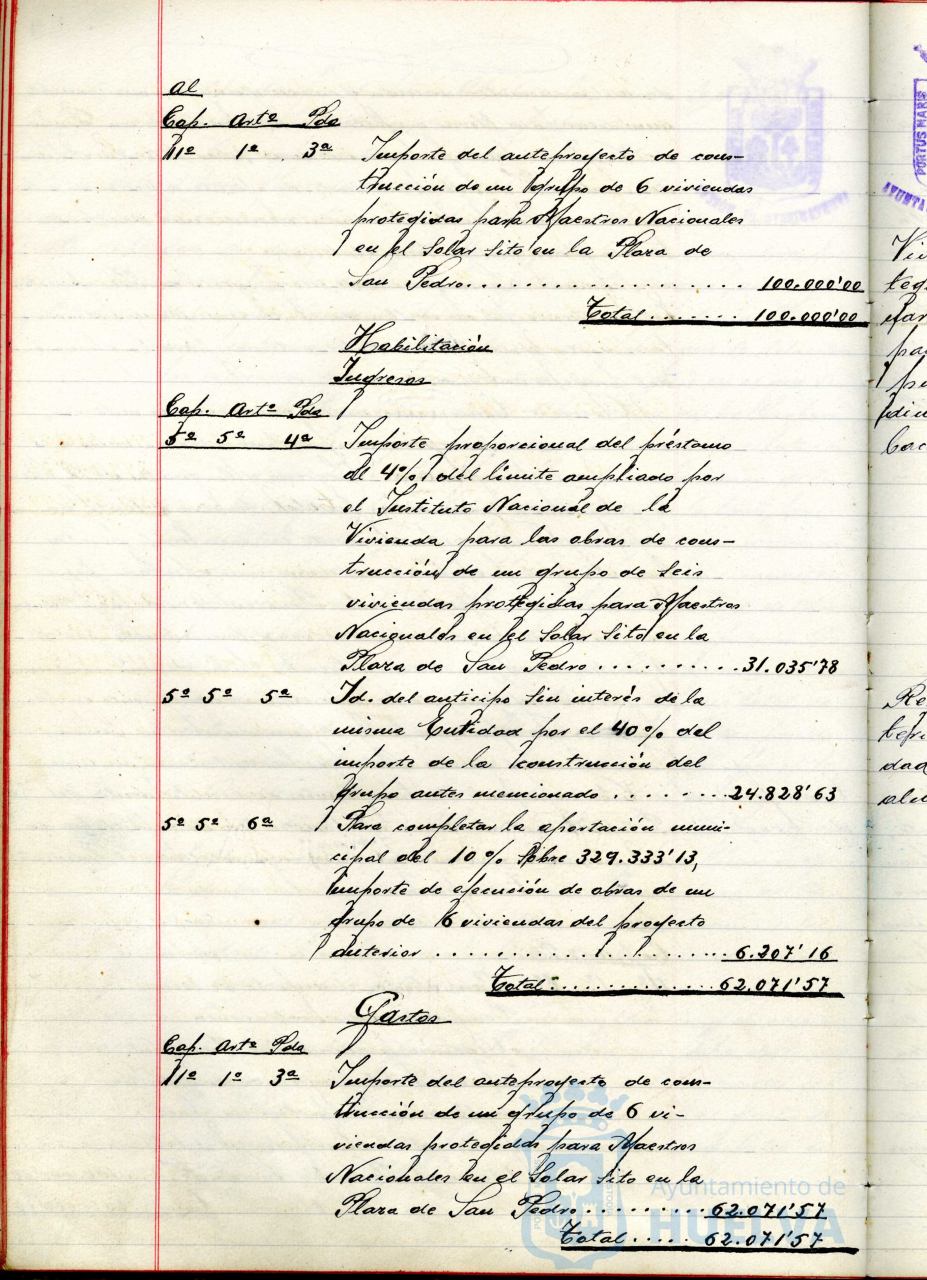 al
Cap. Artº Pda
11º 1º 3ª Importe del anteproyecto de cons-
trucción de un grupo de 6 viviendas
protegidas para Maestros Nacionales
en el Solar Sito en la Plaza de
San Pedro.................... 100.000'00
Total........ 100.000'00
Habilitación
Ingresos
Cap. Artº Pda
5º 5º 4ª Importe proporcional del préstamo
al 4% del límite ampliado por
el Instituto Nacional de la
Vivienda para las obras de cons-
trucción de un grupo de Seis
viviendas protegidas para Maestros
Nacionales en el Solar Sito en la
Plaza de San Pedro.......... 31.035'78
5º 5º 5ª Id. del anticipo sin interés de la
misma Entidad por el 40% del
importe de la construcción del
grupo antes mencionado........ 24.828'63
5º 5º 6ª Para completar la aportación muni-
cipal del 10% Sobre 329.333'13,
importe de ejecución de obras de un
grupo de 6 viviendas del proyecto
anterior.................... 6.207'16
Total.............. 62.071'57
Gastos
Cap. Artº Pda
11º 1º 3ª Importe del anteproyecto de cons-
trucción de un grupo de 6 vi-
viendas protegidas para Maestros
Nacionales en el Solar Sito en la
Plaza de San Pedro.......... 62.071'57
Total..... 62.071'57
Ayuntamiento de
HUELVA
PORTUS MARIS